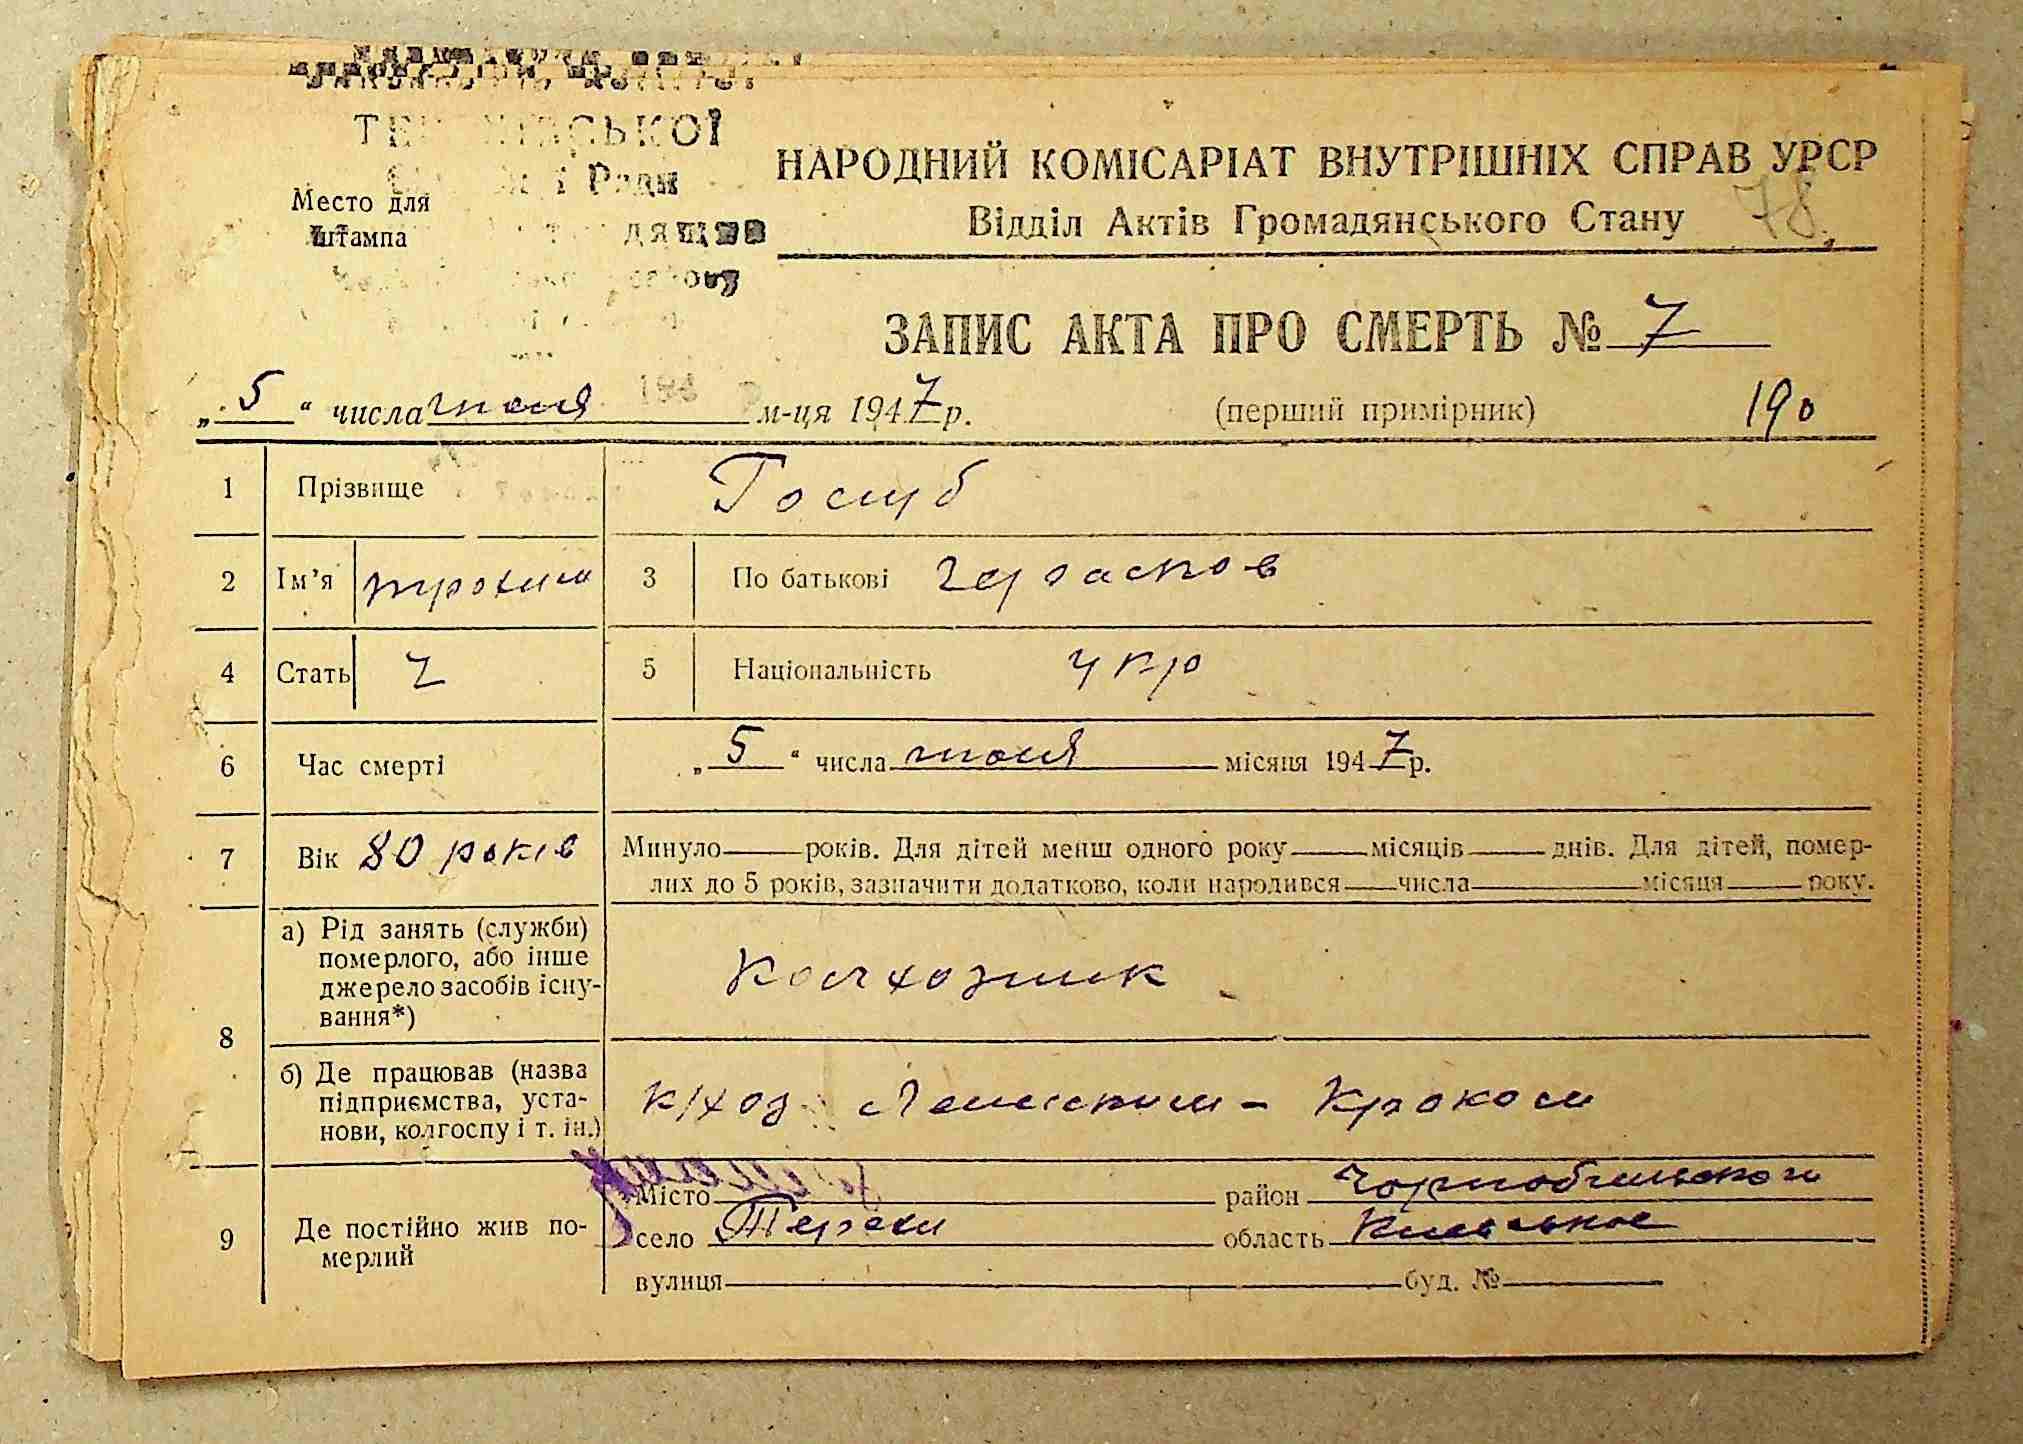 ВИКОНАВЧИЙ КОМІТЕТ
ської
Ради
Место для
штампа
НАРОДНИЙ КОМІСАРІАТ ВНУТРІШНІХ СПРАВ УРСР
Відділ Актів Громадянського Стану
78
ЗАПИС АКТА ПРО СМЕРТЬ № 7
„5“ числа июля м-ця 1947 р. (перший примірник) 190
1 Прізвище Голуб
2 Ім’я трохим 3 По батькові
4 Стать ч 5 Національність укр
6 Час смерті „5“ числа июля місяця 1947 р.
7 Вік 80 років Минуло — років. Для дітей менш одного року — місяців — днів. Для дітей, помер-
лих до 5 років, зазначити додатково, коли народився — числа — місяця — року.
8 а) Рід занять (служби)
померлого, або інше
джерело засобів існу-
вання*)
Колхозник
б) Де працював (назва
підприємства, уста-
нови, колгоспу і т. ін.)
к/хоз Ленинским-Кроком
9 Де постійно жив по-
мерлий
Місто — район Чорнобильского
село Терехи область Киевькое
вулиця — буд. № —